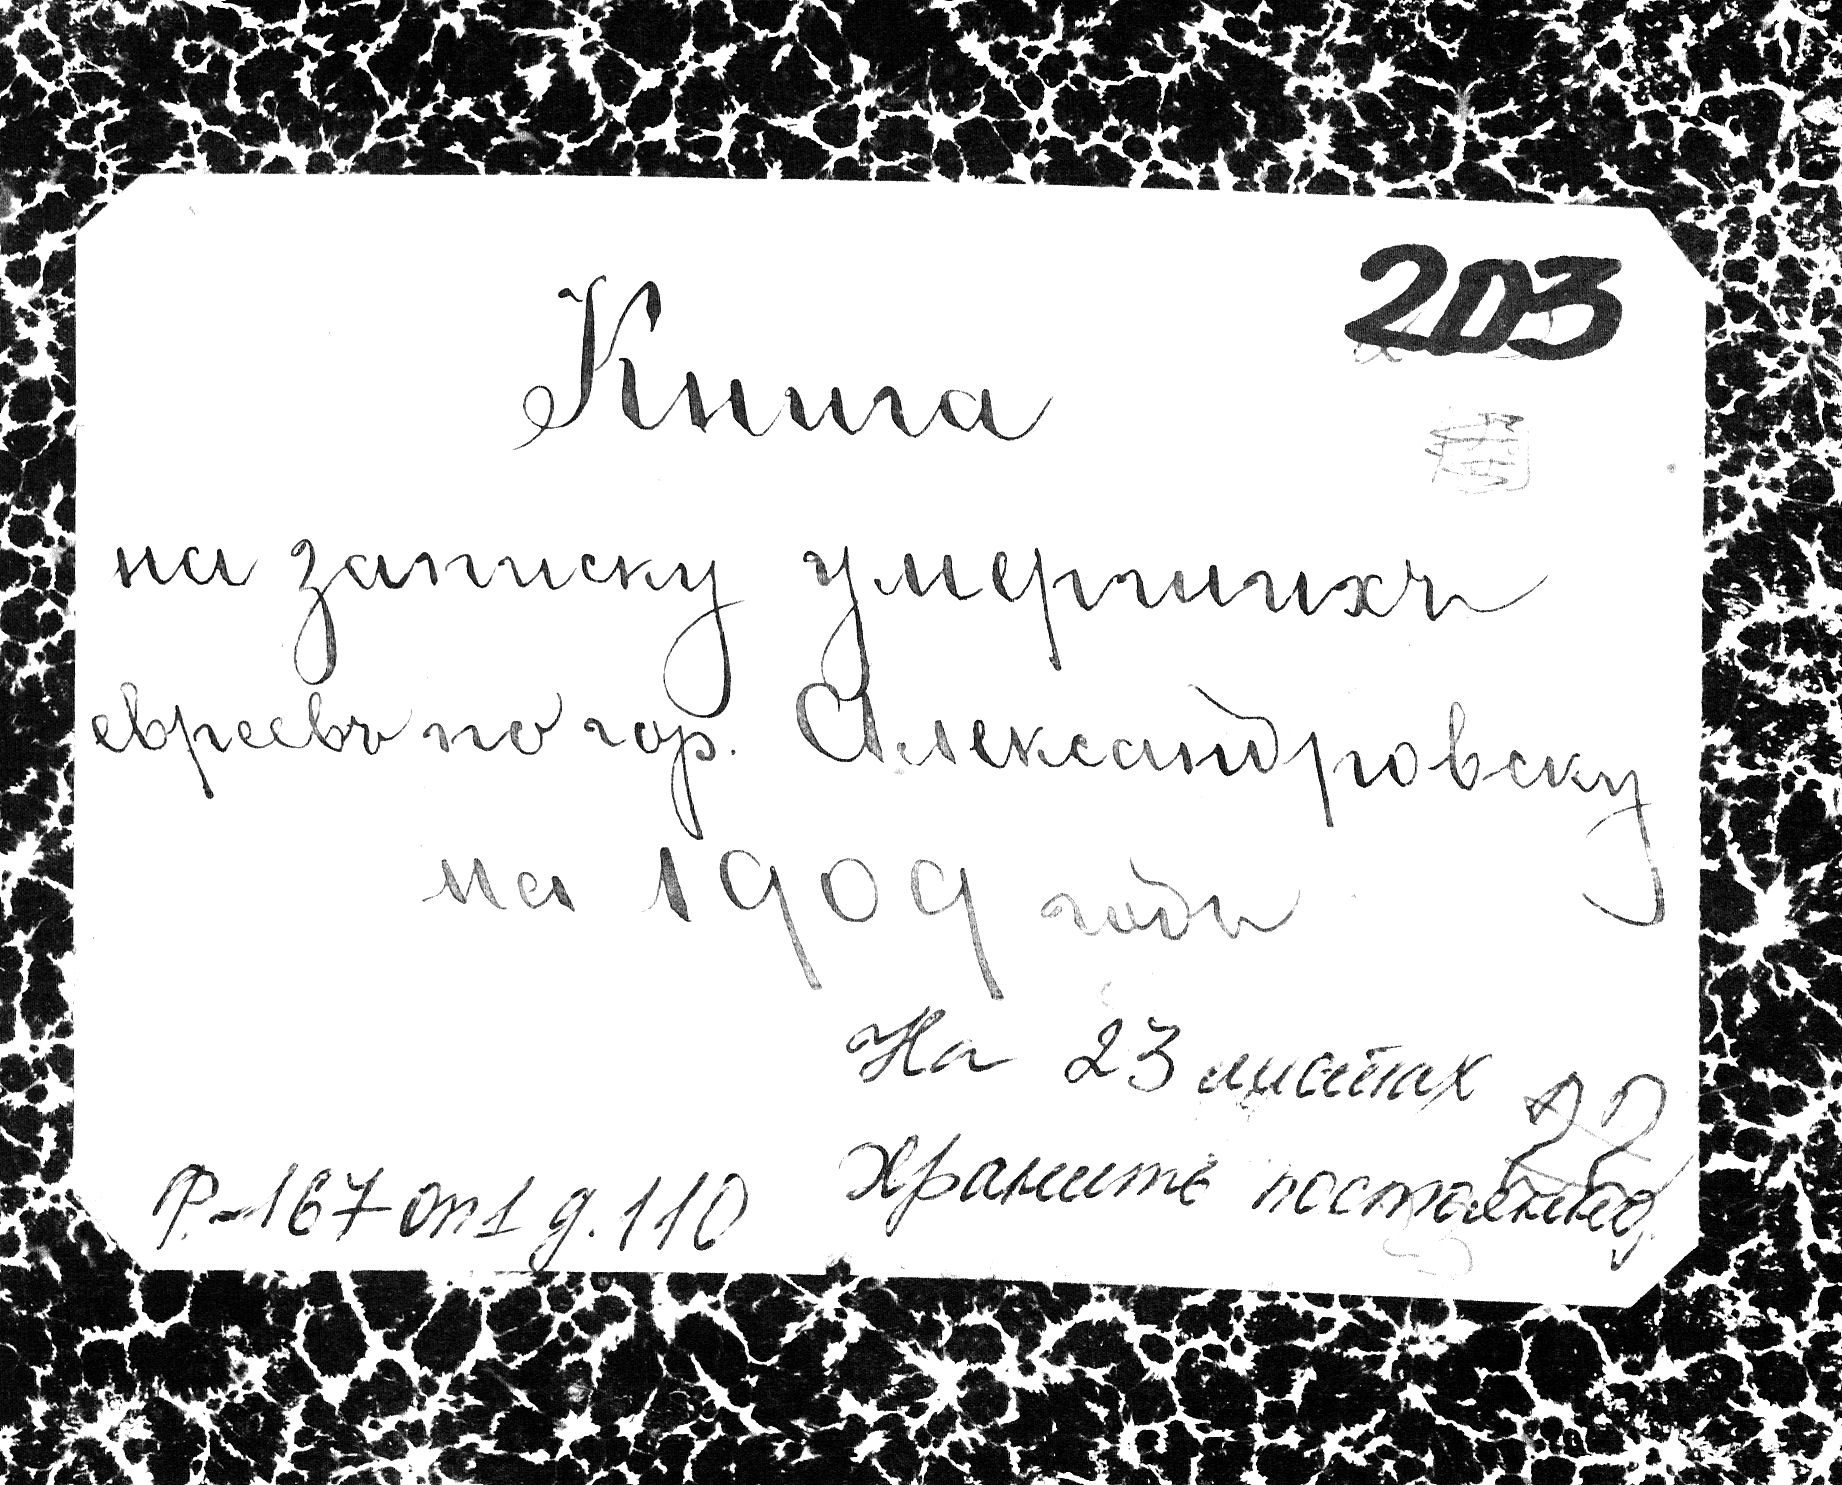 203
Книга
на записку умершихъ
евреевъ по гор. Александровску
на 1909 годъ
На 23 листах
Хранить постоянно
Р.-167 оп1 д.110